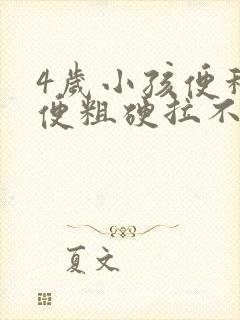 4岁小孩便
便粗硬拉不
夏文